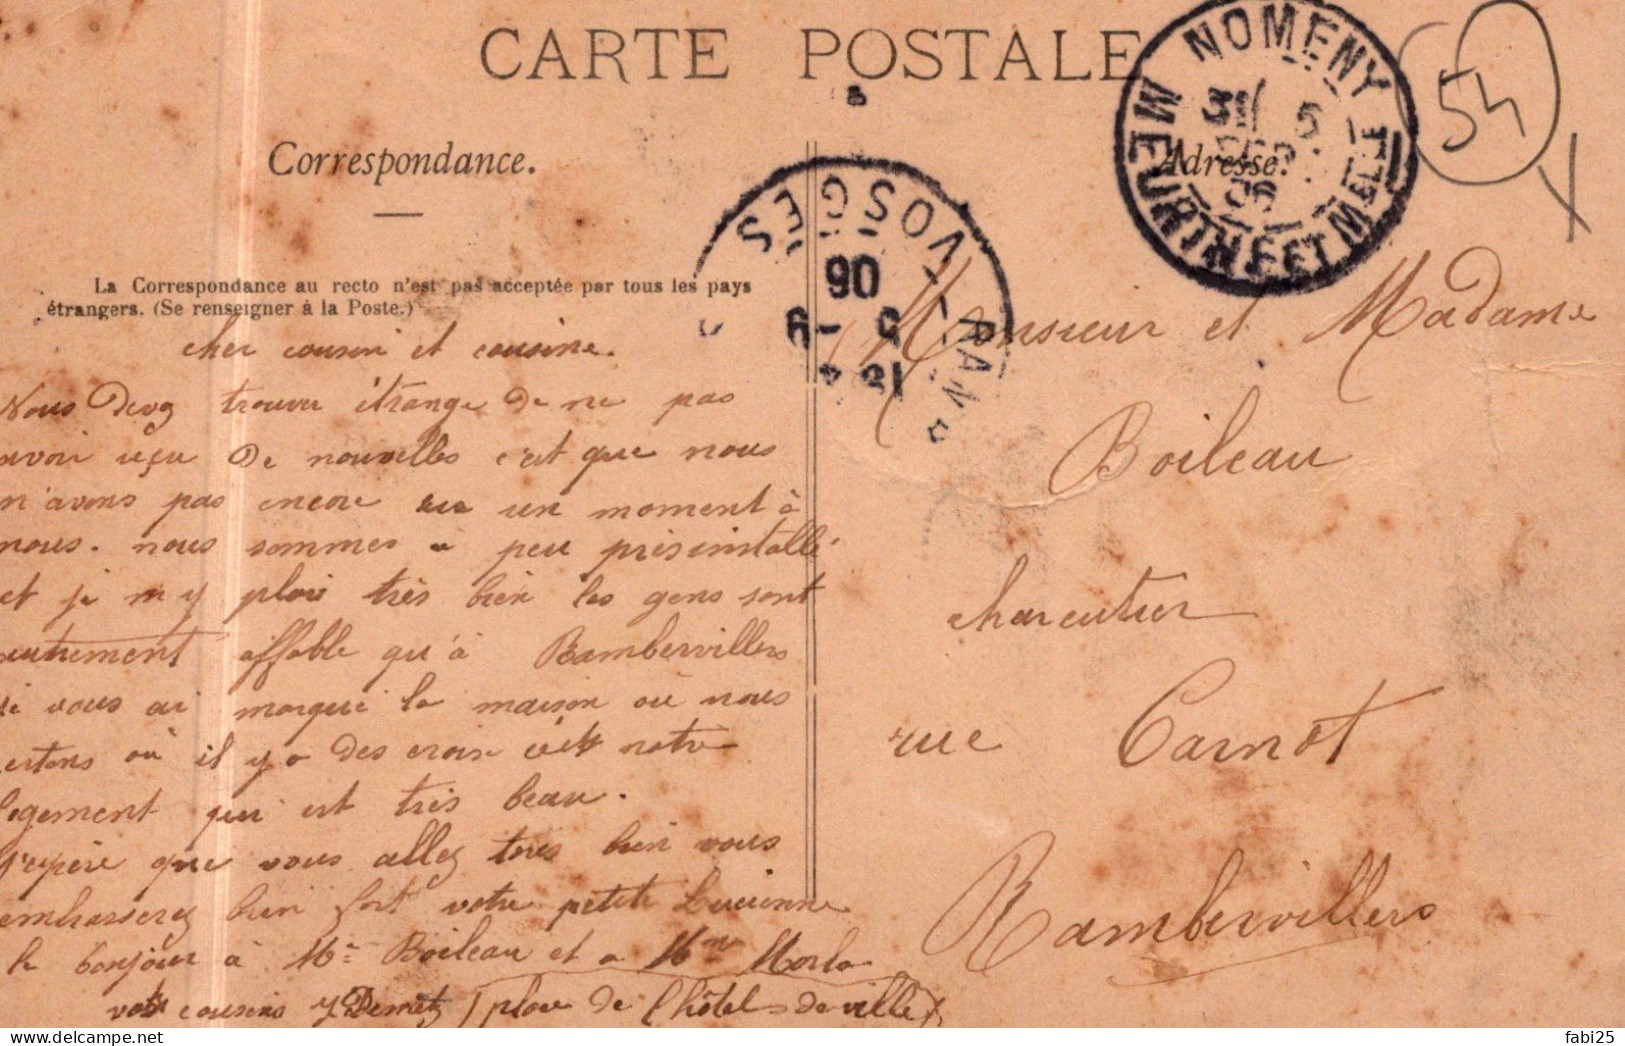 CARTE POSTALE
Correspondance.
Adresse.
NOMENY
MEURTHE-ET-M
54
VOSGES
06
La Correspondance au recto n'est pas acceptée par tous les pays
étrangers. (Se renseigner à la Poste.)
cher cousin et cousine.
Nous devez trouver étrange de ne pas
avoir reçu de nouvelles c'est que nous
n'avons pas encore eu un moment à
nous. nous sommes a peu près installé
et je m y plais très bien les gens sont
autrement affable qu'à Rambervillers
je vous ai marqué la maison ou nous
restons où il y a des croix c'est notre
logement qui est très beau.
J'espère que vous allez tous bien vous
embrasserez bien fort votre petite Lucienne
le bonjour à Mr Boileau et a Mme
vos cousins place de l'hôtel de ville
Monsieur et Madame
Boileau
charcutier
rue Carnot
Rambervillers
fabi25